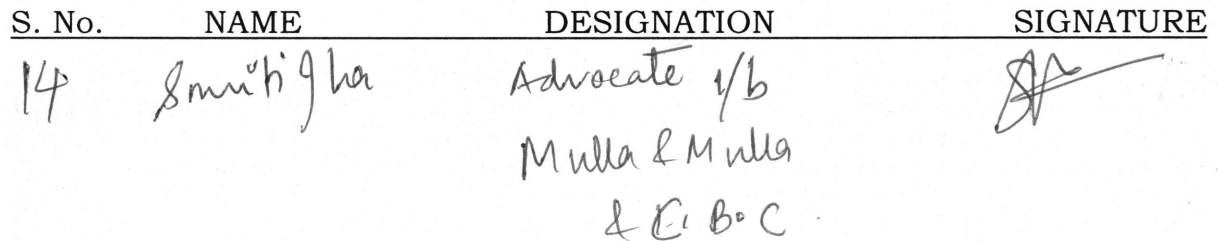 S. No. NAME DESIGNATION SIGNATURE
14 Smriti Jha Advocate i/b
Mulla & Mulla
& C. B. C.